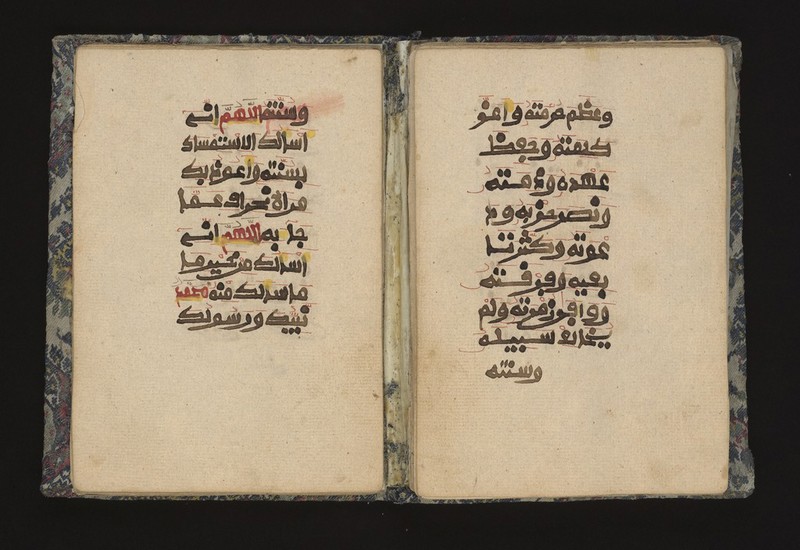 وعظم حرمته واعز
كلمته وحفظ
عهده وذمته
ونصر حزبه ود
عوته وكثر تا
بعيه وفرقته
ووافى زمرته ولم
يخالف سبيله
وسنته
وسنته اللهم اني
اسألك الاستمساك
بسنته واعوذ بك
من الانحراف عما
جا به اللهم اني
اسألك من خير ما
ما سألك منه محمد
نبيك ورسولك